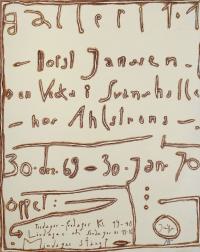 galleri 1.1
- Horst Janssen -
och Vecka i Svaneholle
- hos Ahlstroms -
30. dec. 69 - 30. jan 70
öppet:
Tisdagar - Fredagar Kl. 19-
Lördagar och Söndagar
Måndagar stängt